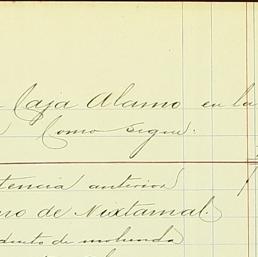 Caja Alamo en la
Como sigue.
tencia anterior
no de Nixtamal.
ducto de molienda